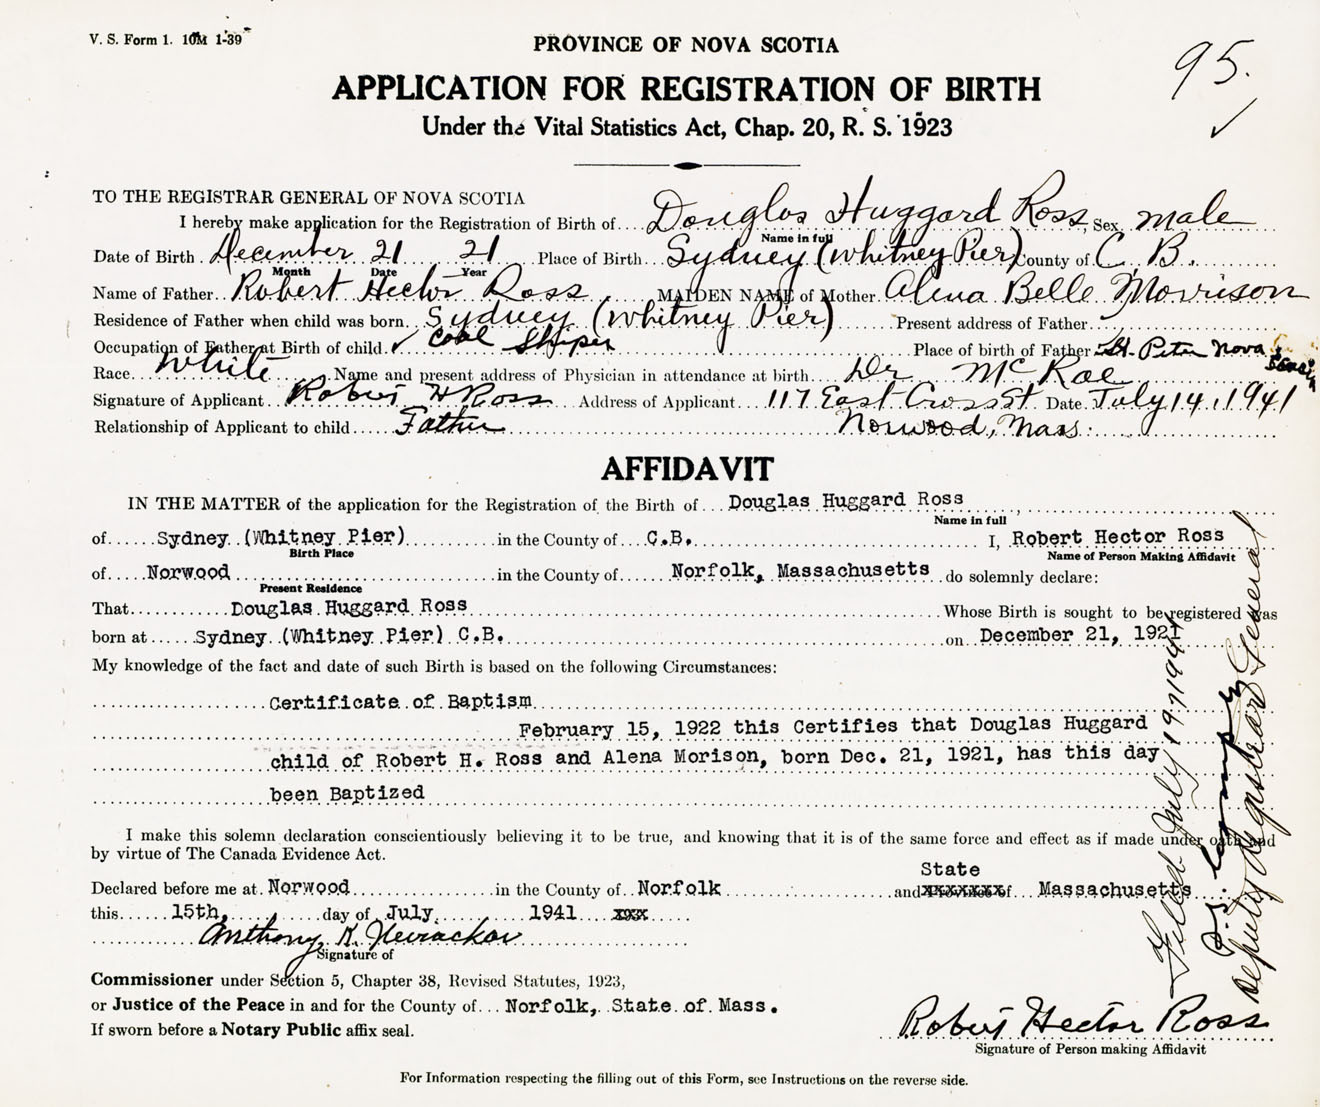 V. S. Form 1. 10M 1-39
95.
PROVINCE OF NOVA SCOTIA
APPLICATION FOR REGISTRATION OF BIRTH
Under the Vital Statistics Act, Chap. 20, R. S. 1923
TO THE REGISTRAR GENERAL OF NOVA SCOTIA
I hereby make application for the Registration of Birth of Douglas Huggard Ross Sex male
Name in full
Date of Birth December 21 21 Place of Birth Sydney (Whitney Pier) County of C. B.
Month Date Year
Name of Father Robert Hector Ross MAIDEN NAME of Mother Alena Belle Morrison
Residence of Father when child was born Sydney (Whitney Pier) Present address of Father
Occupation of Father at Birth of child Coal Shiper Place of birth of Father St. Peter Nova Scotia
Race White Name and present address of Physician in attendance at birth Dr McRae
Signature of Applicant Robert H Ross Address of Applicant 117 East Cross St Date July 14, 1941
Relationship of Applicant to child Father Norwood, Mass.
AFFIDAVIT
IN THE MATTER of the application for the Registration of the Birth of Douglas Huggard Ross
Name in full
of Sydney (Whitney Pier) in the County of C.B. I, Robert Hector Ross
Birth Place Name of Person Making Affidavit
of Norwood in the County of Norfolk, Massachusetts do solemnly declare:
Present Residence
That Douglas Huggard Ross Whose Birth is sought to be registered was
born at Sydney (Whitney Pier) C.B. on December 21, 1921
My knowledge of the fact and date of such Birth is based on the following Circumstances:
Certificate of Baptism
February 15, 1922 this Certifies that Douglas Huggard
child of Robert H. Ross and Alena Morison, born Dec. 21, 1921, has this day
been Baptized
I make this solemn declaration conscientiously believing it to be true, and knowing that it is of the same force and effect as if made under oath and
by virtue of The Canada Evidence Act.
State
Declared before me at Norwood in the County of Norfolk and Province of Massachusetts
this 15th, day of July 1941 xxx
Anthony K.
Signature of
Commissioner under Section 5, Chapter 38, Revised Statutes, 1923,
or Justice of the Peace in and for the County of Norfolk, State of Mass.
If sworn before a Notary Public affix seal.
Robert Hector Ross
Signature of Person making Affidavit
For Information respecting the filling out of this Form, see Instructions on the reverse side.
Filed July 19, 1941
Deputy Registrar General